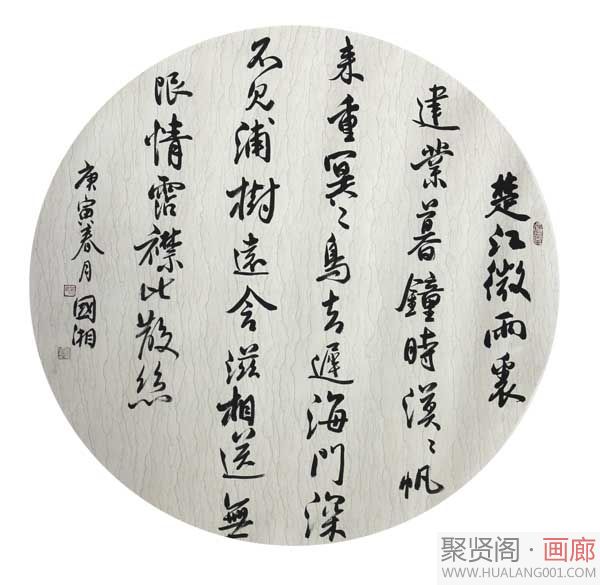 楚江微雨裏
建業暮鐘時漠〻帆
来重冥〻鳥去遲海門深
不見浦樹遠含滋相送無
限情霑襟比散絲
庚寅春月國湘
聚贤阁·画廊
WWW.HUALANG001.COM